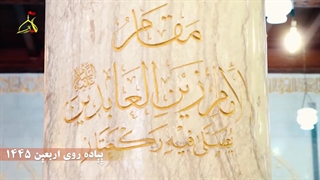 مقام
لأمام زين العابدين
يصلى فيه ركعتان
پیاده روی اربعین ۱۴۴۵